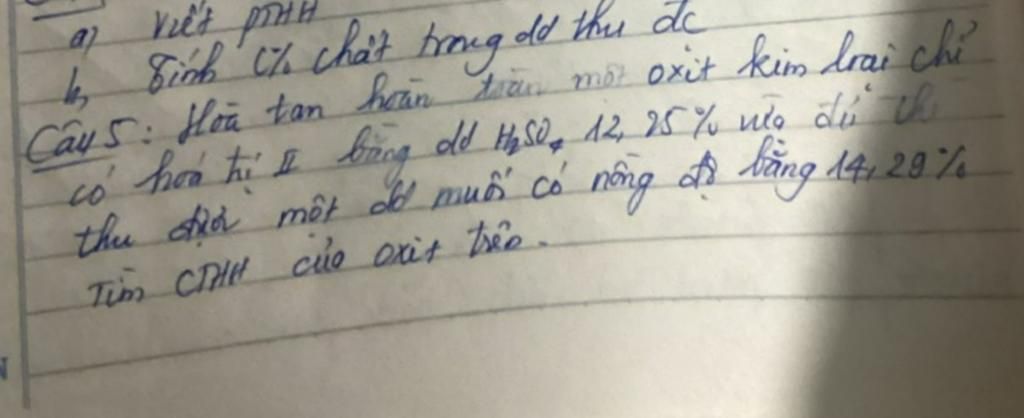 a) viết PTHH
b, Tính C% chất trong dd thu đc
Câu 5: Hoà tan hoàn toàn một oxit kim loại chỉ
có hoá trị II bằng dd H₂SO₄ 12,25% vừa đủ thì
thu được một dd muối có nồng độ bằng 14,29%
Tìm CTHH của oxit trên.